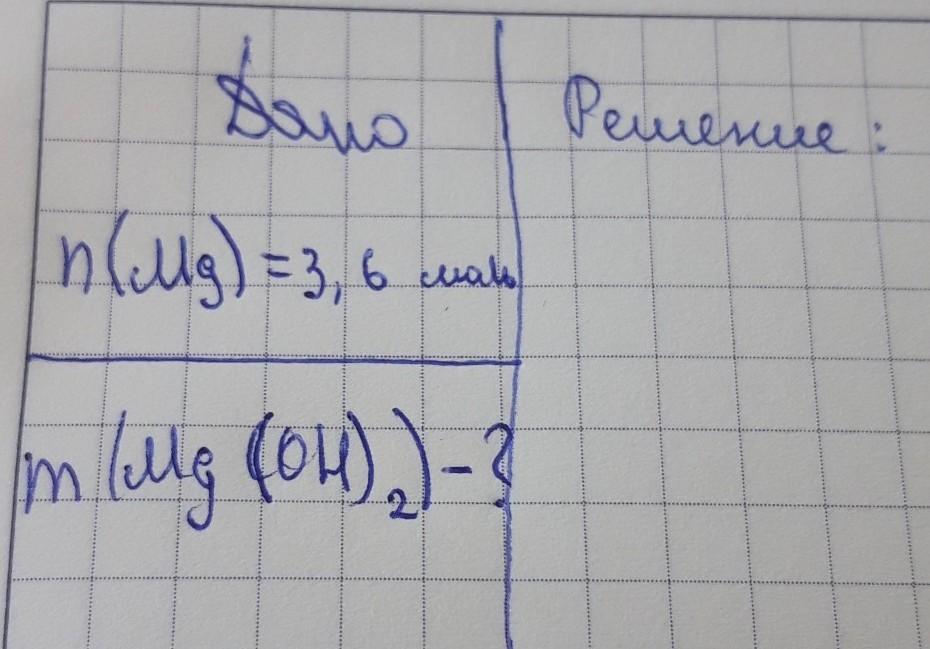 Дано
Решение:
n(Mg) = 3,6 моль
m(Mg(OH)₂) - ?